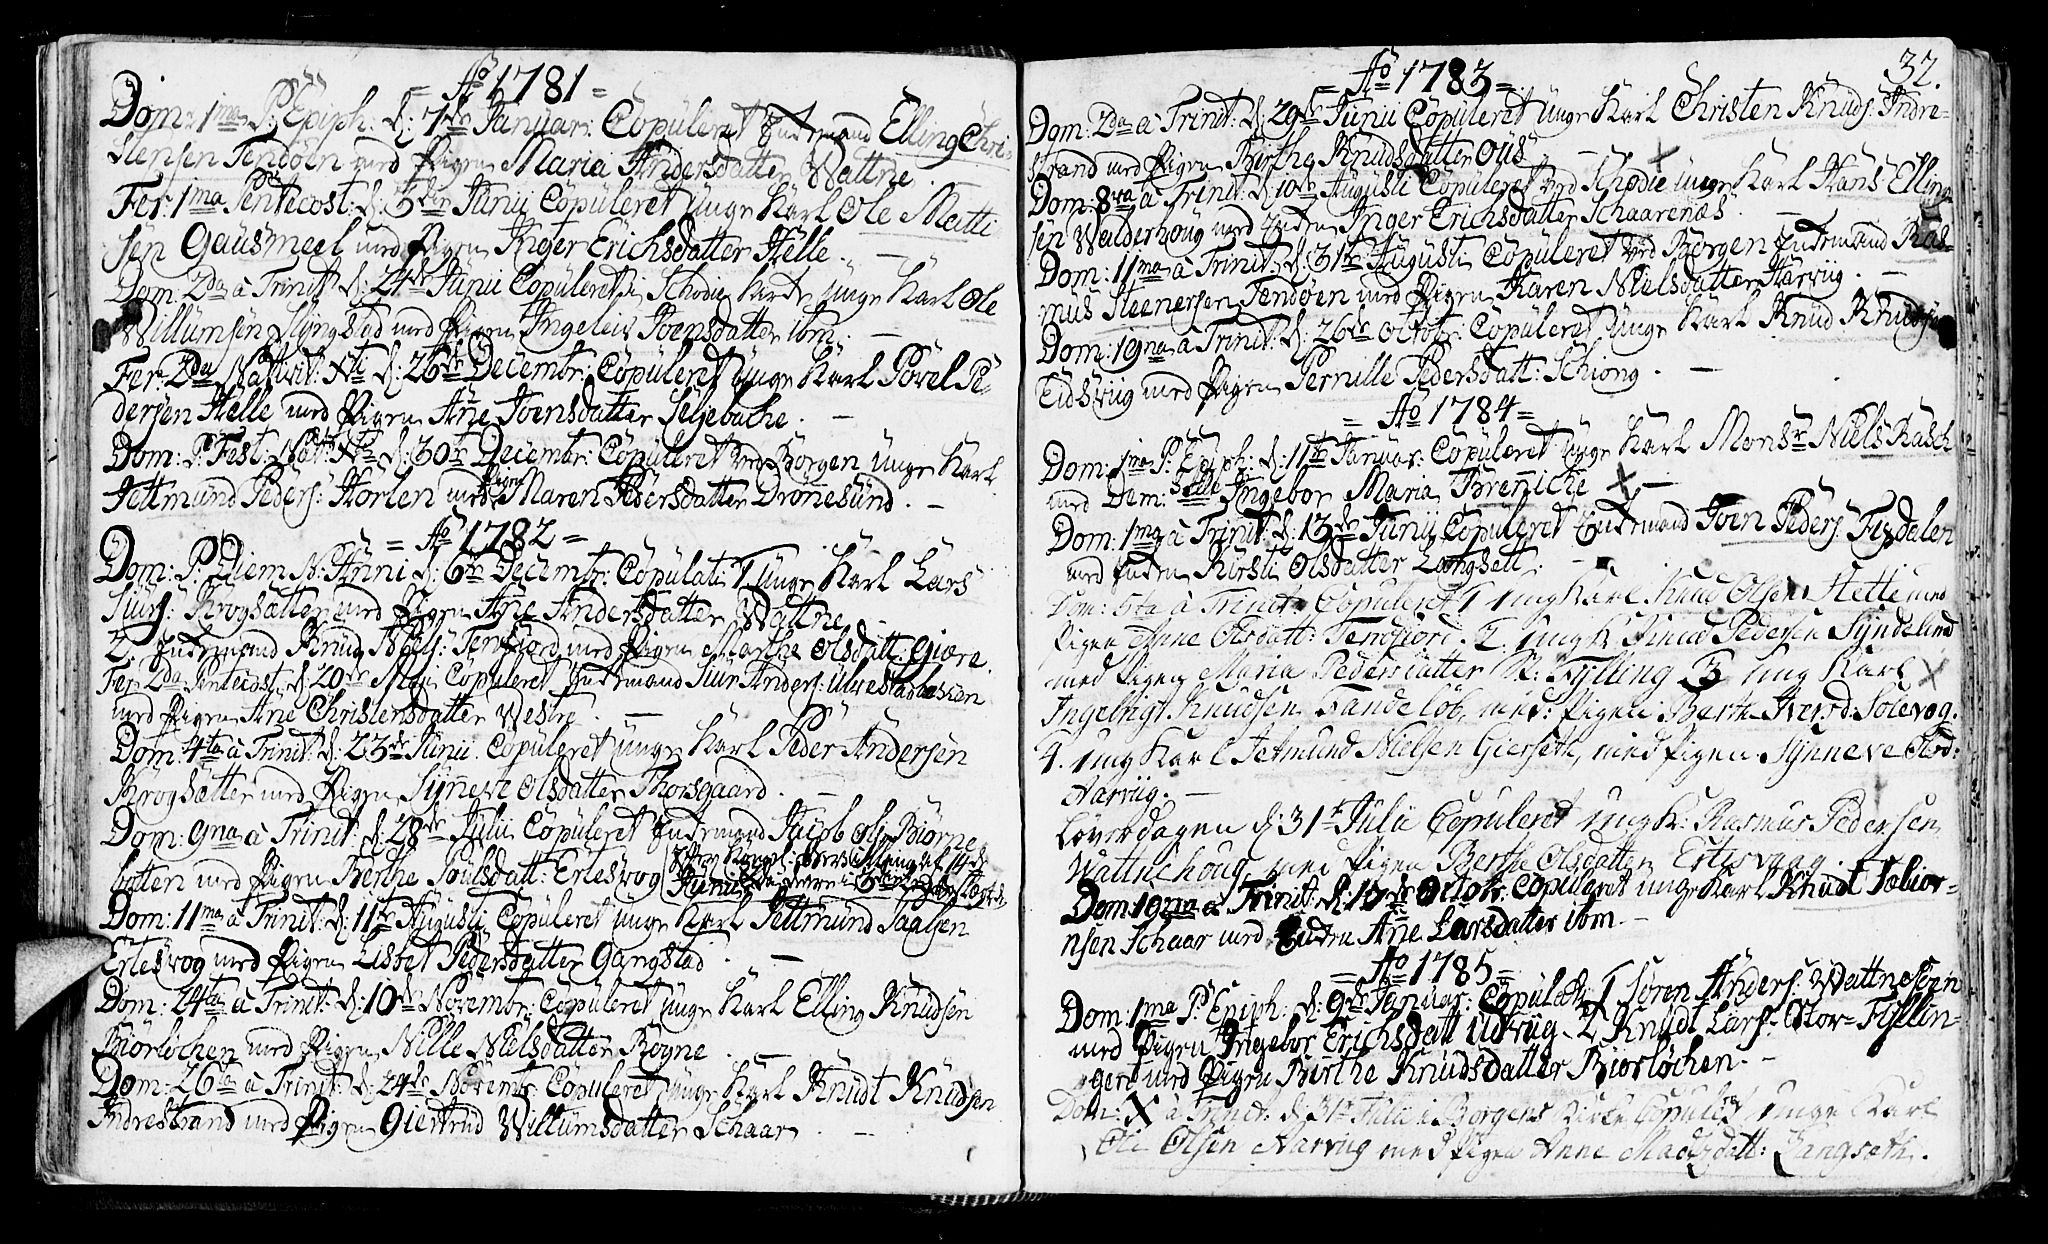 = Ao 1781 =
Dom: 1ma P: Epiph: d: 7de Januar: Copuleret Enkemand Elling Chri-
stensen Tendøen med Pigen Maria Andersdatter Wattne.
Fer: 1ma Pentecost: d: 3de Junii Copuleret unge Karl Ole Matti
sen Gausmeel med Pigen Inger Erichsdatter Helle. —
Dom: 2da à Trinit: d: 24de Junii Copuleret i Schodie Kirke unge Karl Ole
Willumsen Slyngstad med Pigen Ingeleu Joensdatter ibm. —
Fer: 2da Nativit: Xti d: 26de Decembr: Copuleret unge Karl Povel Pe-
dersen Helle med Pigen Ane Joensdatter Seljebache. —
Dom: P: Fest: Nat: Xti d: 30te Decembr: Copuleret ved Borgen unge Karl
Jettmund Peders: Horlen med Pigen Maren Pedersdatter Dronesund. —
= Ao 1782 =
Dom: P: Diem N: Anni d: 6te Decembr: Copulati 1 unge Karl Lars
Siurs: Krogsætter med Pigen Ane Andersdatter Wattne
2. Enkemand Knud Niels: Tenfiord med Pigen Marthe Olsdatt: Giære
Fer: 2da Pentecost: d: 20de Maji Copuleret Enkemand Siur Anders: Ulvestadbeskien
med Pigen Ane Christensdatter Vestre. —
Dom: 4ta à Trinit: d: 23de Junii Copuleret unge Karl Peder Andersen
Krogsætter med Pigen Synneve Olsdatter Thorsgaard. —
Dom: 9na à Trinit: d: 28de Julii Copuleret Enkemand Jacob Ols: Biørne
botten med Pigen Berthe Poulsdatt: Erlesvog
Dom: 11ma à Trinit: d: 11te Augusti Copuleret unge Karl Jettmund Saalsen
Erlesvog med Pigen Lisbet Pedersdatter Gangstad. —
Dom: 24ta à Trinit: d: 10de Novembr: Copuleret unge Karl Elling Knudsen
Biørløchen med Pigen Nille Nielsdatter Røyne. —
Dom: 26ta à Trinit: d: 24de Novembr: Copuleret unge Karl Knudt Knudsen
Indrestrand med Pigen Giertrud Willumsdatter Schaar. —
32.
= Ao 1783 =
Dom: 2da à Trinit: d: 29de Junii Copuleret unge Karl Christen Knuds: Indre-
strand med Pigen Birthe Knudsdatter Ous —
Dom: 8va à Trinit: d: 10de Augusti Copuleret ved Schodie unge Karl Hans Elling
sen Walderhoug med Enken Inger Erichsdatter Schaarenæs. —
Dom: 11ma à Trinit: d: 31te Augusti Copuleret ved Borgen Enkemand Ras-
mus Steenersen Tendøen med Pigen Karen Nielsdatter Harviig. —
Dom: 19na à Trinit: d: 26de Octobr: Copuleret unge Karl Knud Knudsen
Eidsviig med Pigen Pernille Pedersdatt: Schiong. —
= Ao 1784 =
Dom: 1ma P: Epiph: d: 11te Januar: Copuleret unge Karl Monsr Niels Rasch
med Dem:selle Ingebor Maria Brenniche X —
Dom: 1ma à Trinit: d: 13de Junii Copuleret Enkemand Joen Peders: Fixdalen
med Enken Kirsti Olsdatter Langsett. —
Dom: 5ta à Trinit: Copuleret 1 Ung Karl Knud Olsen Helle med
Pigen Anne Olsdatt: Tenfiord. 2. Ung K: Knud Pedersen Syndelund
med Pigen Maria Pedersdatter N: Fylling 3 Ung Karl X
Ingebrigt Knudsen Tandeløb, med: Pigen: Berthe Iversd: Solevog.
4. Ung Karl Jetmund Nielsen Gierseth, med Pigen Synneve Olsd:
Harviig. —
Løverdagen d: 31te Julii Copuleret Ung K: Rasmus Pedersen
Wattnehoug med Pigen Berthe Olsdatter Erlesvaag.
Dom 19na à Trinit: d: 10de Octobr: Copuleret unge Karl Knudt Tøbior-
nsen Schaar med Enken Ane Larsdatter ibm —
= Ao 1785 =
Dom: 1ma P: Epiph: d: 9de Januar: Copulati 1 Søren Anders: Wattneøren
med Pigen Ingebor Erichsdatt Udviig 2 Knudt Lars: Stor= Fislin-
gen med Pigen Birthe Knudsdatter Biorløchen. —
Dom: X à Trinit: d: 31te Julii i Borgens Kirke Copuleret unge Karl
Ole Olsen Harviig med Pigen Anne Madsdatt: Langseth.